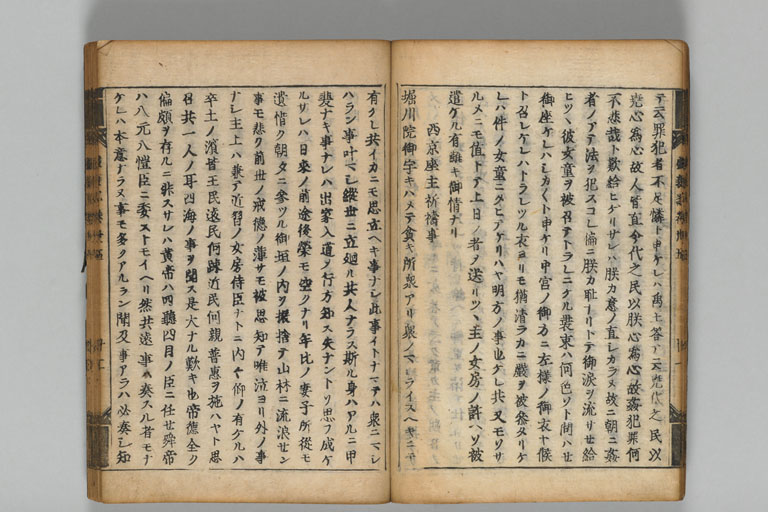 テ云罪犯者不足憐ト申ケレハ禹王答テニ云堯代之民以
堯心為心故人皆直今代之民以朕心為心故姦犯罪何
不悲哉ト歎給ヒケリサレハ朕カ意ノ直シカラメ故ニ朝ニ姦
者ノアテ法ヲ犯スコレ偏ニ朕カ耻ナリトテ御涙ヲ流サセ給
ヒツヽ彼女童ヲ被召テトラレニケル装束ハ何色ソト問ハセ
御座ケレハシカ〳〵ト申ケリ中宮ノ御方ニ左様ノ御衣ヤ候
ト召レケレハトラレツル衣ヨリモ猶清ラカニ厳ヲ被参タリケ
レハ件ノ女童ニタヒテケリハヤ明方ノ事也ケレ共又モソサ
ルメニモ値トテ上日ノ者ヲ送リツヽ主ノ女房ノ許ヘソ被
遣ケル有難キ御情ナリ
西京座主祈祷事
堀川院御宇キハメテ貧キ所衆アリ衆ノマシライスヘキニテ
有ケレ共イカニモ思立ヘキ事ナシ此事イトナマテハ衆ニマシ
ハラン事叶マシ縦世ニ立廻ル共人ナラス斯ル身ハアルニ甲
斐ナキ事ナレハ出家入道ノ行方知ス失ナントソ思フ成ケ
ルサレハ日来ノ前途後榮モ空クナリ年比ノ妻子所従モ
遺惜ク朝夕ニ参ツル御垣ノ内ヲ振捨テ山林ニ流浪セン
事モ悲ク前世ノ戒徳ノ薄サモ被思知テ唯泣ヨリ外ノ事
ナシ主上ハ兼テ近習ノ女房侍臣ナトニ内々仰ノ有ケルハ
卒土ノ濱皆王民遠民何疎近民何親普恵ヲ施ハヤト思
召共一人ノ耳四海ノ事ヲ聞ス是大ナル歎キ也帝徳全ク
偏頗ヲ存ルニ非スサレハ黄帝ハ四聴四目ノ臣ニ任セ舜帝
ハ八元八愷臣ニ委ストモイヘリ然共遠事ハ奏スル者モナ
ケレハ本意ナラヌ事モ多クアルラン聞及事アラハ必奏シ知